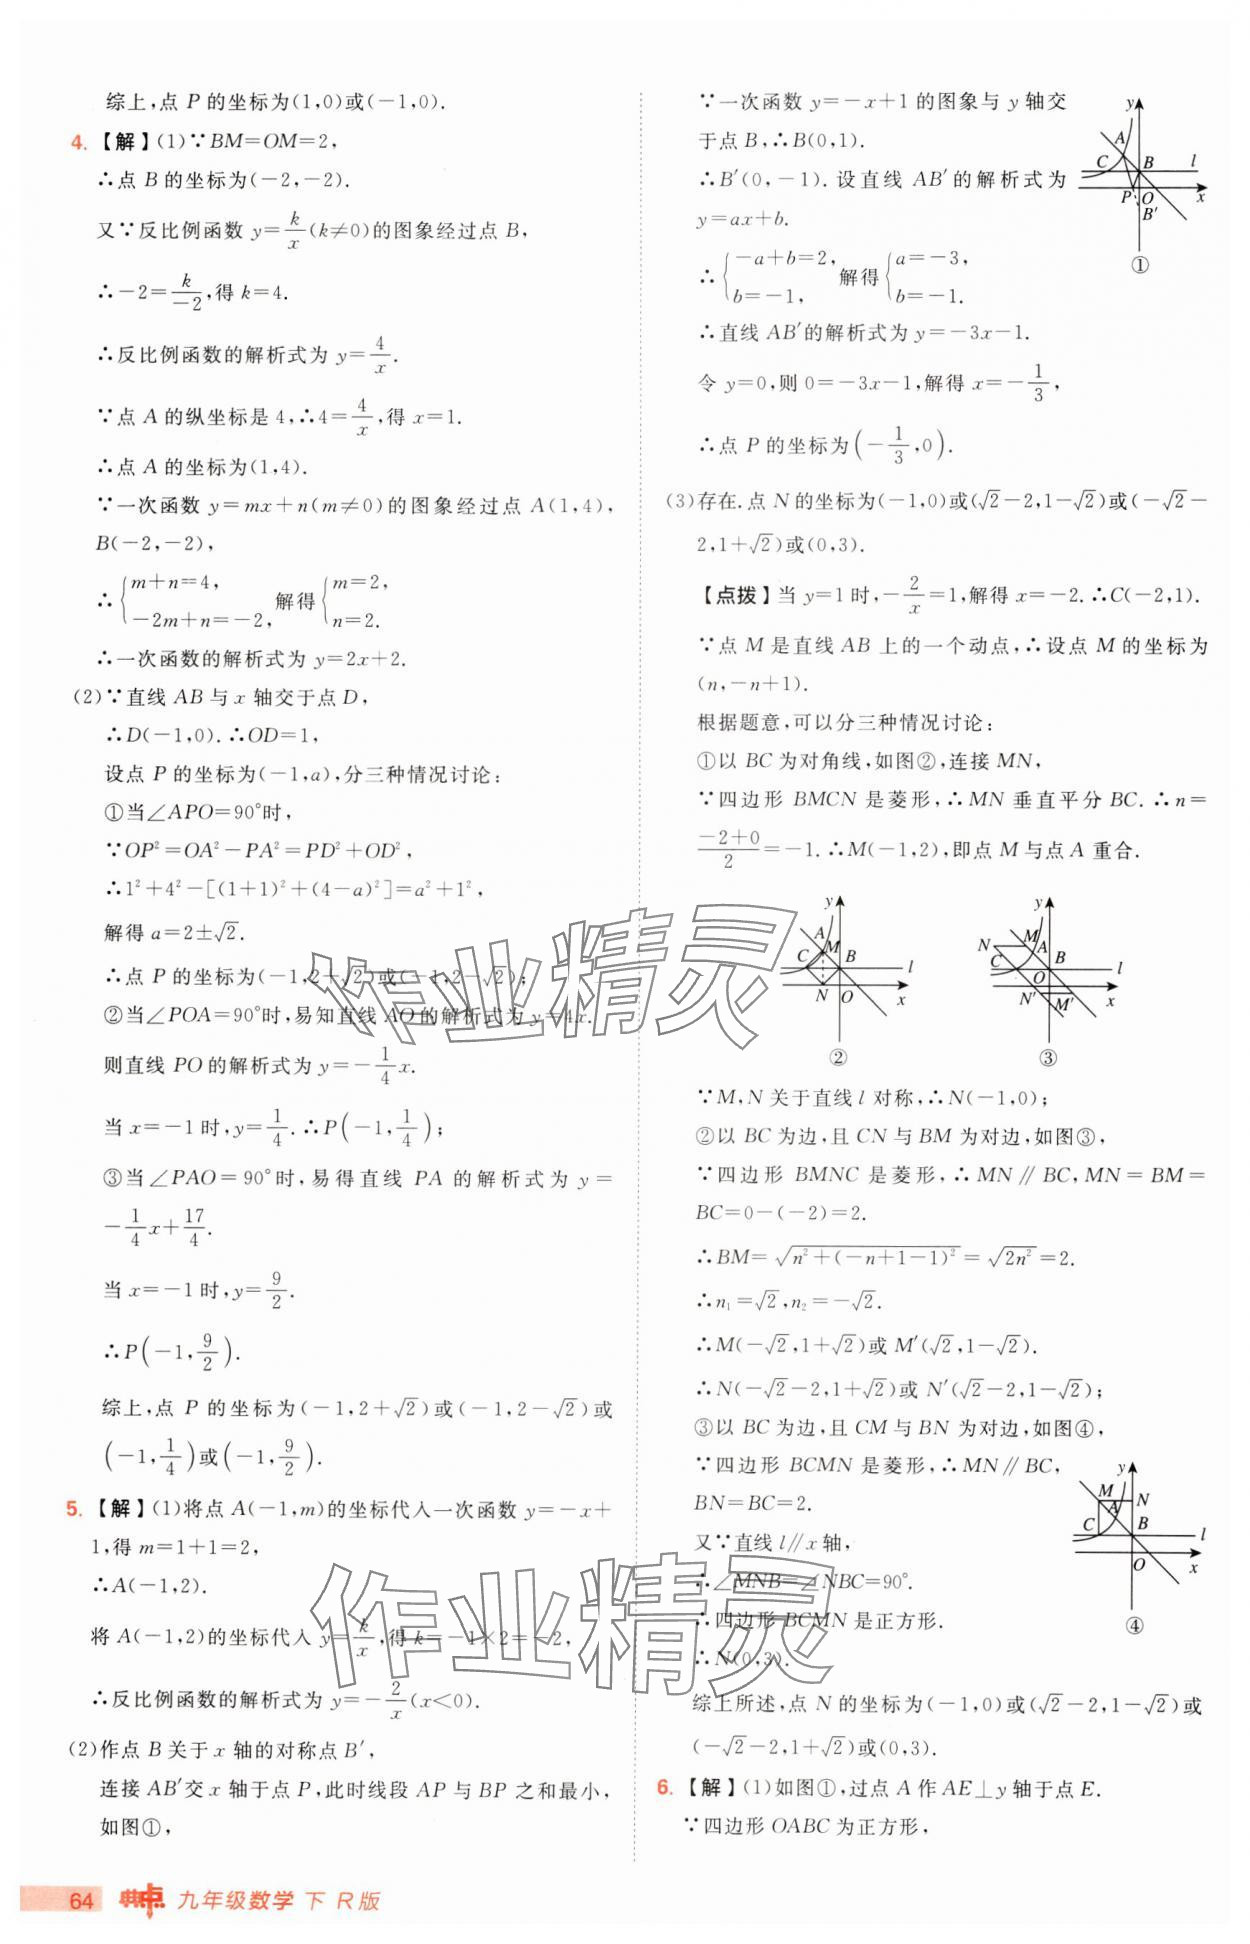 综上,点 P 的坐标为(1,0)或(-1,0).
4. 【解】(1)∵BM=OM=2,
∴点 B 的坐标为(-2,-2).
又∵反比例函数 y=k/x(k≠0)的图象经过点 B,
∴-2=k/-2,得 k=4.
∴反比例函数的解析式为 y=4/x.
∵点 A 的纵坐标是 4,∴4=4/x,得 x=1.
∴点 A 的坐标为(1,4).
∵一次函数 y=mx+n(m≠0)的图象经过点 A(1,4),
B(-2,-2),
∴{m+n=4, -2m+n=-2, 解得{m=2, n=2.
∴一次函数的解析式为 y=2x+2.
(2)∵直线 AB 与 x 轴交于点 D,
∴D(-1,0).∴OD=1,
设点 P 的坐标为(-1,a),分三种情况讨论:
①当∠APO=90°时,
∵OP²=OA²-PA²=PD²+OD²,
∴1²+4²-[(1+1)²+(4-a)²]=a²+1²,
解得 a=2±√2.
∴点 P 的坐标为(-1,2+√2)或(-1,2-√2);
②当∠POA=90°时,易知直线 AO 的解析式为 y=4x.
则直线 PO 的解析式为 y=-1/4x.
当 x=-1 时,y=1/4.∴P(-1,1/4);
③当∠PAO=90°时,易得直线 PA 的解析式为 y=
-1/4x+17/4.
当 x=-1 时,y=9/2.
∴P(-1,9/2).
综上,点 P 的坐标为(-1,2+√2)或(-1,2-√2)或
(-1,1/4)或(-1,9/2).
5. 【解】(1)将点 A(-1,m)的坐标代入一次函数 y=-x+
1,得 m=1+1=2,
∴A(-1,2).
将 A(-1,2)的坐标代入 y=k/x,得 k=-1×2=-2,
∴反比例函数的解析式为 y=-2/x(x<0).
(2)作点 B 关于 x 轴的对称点 B′,
连接 AB′交 x 轴于点 P,此时线段 AP 与 BP 之和最小,
如图①,
∵一次函数 y=-x+1 的图象与 y 轴交
于点 B,∴B(0,1).
∴B′(0,-1).设直线 AB′的解析式为
y=ax+b.
∴{-a+b=2, b=-1, 解得{a=-3, b=-1.
∴直线 AB′的解析式为 y=-3x-1.
令 y=0,则 0=-3x-1,解得 x=-1/3,
∴点 P 的坐标为(-1/3,0).
y
A
C
B
l
P
O
x
B′
①
(3)存在.点 N 的坐标为(-1,0)或(√2-2,1-√2)或(-√2-
2,1+√2)或(0,3).
【点拨】当 y=1 时,-2/x=1,解得 x=-2.∴C(-2,1).
∵点 M 是直线 AB 上的一个动点,∴设点 M 的坐标为
(n,-n+1).
根据题意,可以分三种情况讨论:
①以 BC 为对角线,如图②,连接 MN,
∵四边形 BMCN 是菱形,∴MN 垂直平分 BC.∴n=
-2+0/2=-1.∴M(-1,2),即点 M 与点 A 重合.
y
A
M
C
B
l
N
O
x
②
y
N
M
A
C
B
l
O
N′
M′
x
③
∵M,N 关于直线 l 对称,∴N(-1,0);
②以 BC 为边,且 CN 与 BM 为对边,如图③,
∵四边形 BMNC 是菱形,∴MN∥BC,MN=BM=
BC=0-(-2)=2.
∴BM=√n²+(-n+1-1)²=√2n²=2.
∴n₁=√2,n₂=-√2.
∴M(-√2,1+√2)或 M′(√2,1-√2).
∴N(-√2-2,1+√2)或 N′(√2-2,1-√2);
③以 BC 为边,且 CM 与 BN 为对边,如图④,
∵四边形 BCMN 是菱形,∴MN∥BC,
BN=BC=2.
又∵直线 l∥x 轴,
∴∠MNB=∠NBC=90°.
∴四边形 BCMN 是正方形.
∴N(0,3).
y
M
A
N
C
B
l
O
x
④
综上所述,点 N 的坐标为(-1,0)或(√2-2,1-√2)或
(-√2-2,1+√2)或(0,3).
6. 【解】(1)如图①,过点 A 作 AE⊥y 轴于点 E.
∵四边形 OABC 为正方形,
作业精灵
作业精灵
64 典中点 九年级数学 下 R版